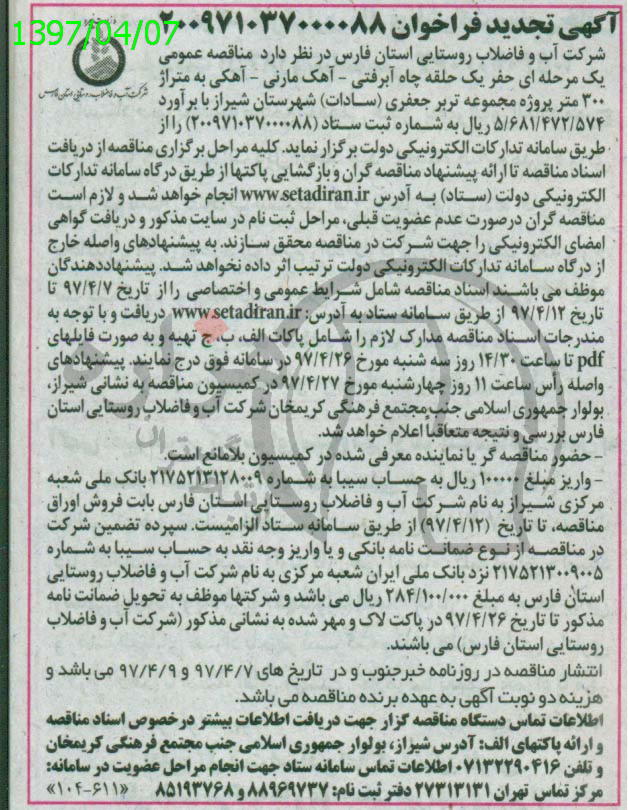 1397/04/07
آگهی تجدید فراخوان ۲۰۰۹۷۱۰۳۷۰۰۰۰۸۸
شرکت آب و فاضلاب روستایی استان فارس
شرکت آب و فاضلاب روستایی استان فارس در نظر دارد مناقصه عمومی
یک مرحله ای حفر یک حلقه چاه آبرفتی - آهک مارنی - آهکی به متراژ
۳۰۰ متر پروژه مجموعه تربر جعفری (سادات) شهرستان شیراز با برآورد
۵/۶۸۱/۴۷۲/۵۷۴ ریال به شماره ثبت ستاد (۲۰۰۹۷۱۰۳۷۰۰۰۰۸۸) را از
طریق سامانه تدارکات الکترونیکی دولت برگزار نماید. کلیه مراحل برگزاری مناقصه از دریافت
اسناد مناقصه تا ارائه پیشنهاد مناقصه گران و بازگشایی پاکتها از طریق درگاه سامانه تدارکات
الکترونیکی دولت (ستاد) به آدرس www.setadiran.ir انجام خواهد شد و لازم است
مناقصه گران درصورت عدم عضویت قبلی، مراحل ثبت نام در سایت مذکور و دریافت گواهی
امضای الکترونیکی را جهت شرکت در مناقصه محقق سازند. به پیشنهادهای واصله خارج
از درگاه سامانه تدارکات الکترونیکی دولت ترتیب اثر داده نخواهد شد. پیشنهاددهندگان
موظف می باشند اسناد مناقصه شامل شرایط عمومی و اختصاصی را از تاریخ ۹۷/۴/۷ تا
تاریخ ۹۷/۴/۱۲ از طریق سامانه ستاد به آدرس: www.setadiran.ir دریافت و با توجه به
مندرجات اسناد مناقصه مدارک لازم را شامل پاکات الف، ب، ج تهیه و به صورت فایلهای
pdf تا ساعت ۱۴/۳۰ روز سه شنبه مورخ ۹۷/۴/۲۶ در سامانه فوق درج نمایند. پیشنهادهای
واصله رأس ساعت ۱۱ روز چهارشنبه مورخ ۹۷/۴/۲۷ در کمیسیون مناقصه به نشانی شیراز،
بولوار جمهوری اسلامی جنب مجتمع فرهنگی کریمخان شرکت آب و فاضلاب روستایی استان
فارس بررسی و نتیجه متعاقبا اعلام خواهد شد.
- حضور مناقصه گر یا نماینده معرفی شده در کمیسیون بلامانع است.
- واریز مبلغ ۱۰۰۰۰۰ ریال به حساب سیبا به شماره ۲۱۷۵۲۱۳۱۲۸۰۰۹ بانک ملی شعبه
مرکزی شیراز به نام شرکت آب و فاضلاب روستایی استان فارس بابت فروش اوراق
مناقصه، تا تاریخ (۹۷/۴/۱۲) از طریق سامانه ستاد الزامیست. سپرده تضمین شرکت
در مناقصه از نوع ضمانت نامه بانکی و یا واریز وجه نقد به حساب سیبا به شماره
۲۱۷۵۲۱۳۰۰۹۰۰۵ نزد بانک ملی ایران شعبه مرکزی به نام شرکت آب و فاضلاب روستایی
استان فارس به مبلغ ۲۸۴/۱۰۰/۰۰۰ ریال می باشد و شرکتها موظف به تحویل ضمانت نامه
مذکور تا تاریخ ۹۷/۴/۲۶ در پاکت لاک و مهر شده به نشانی مذکور (شرکت آب و فاضلاب
روستایی استان فارس) می باشند.
انتشار مناقصه در روزنامه خبرجنوب و در تاریخ های ۹۷/۴/۷ و ۹۷/۴/۹ می باشد و
هزینه دو نوبت آگهی به عهده برنده مناقصه می باشد.
اطلاعات تماس دستگاه مناقصه گزار جهت دریافت اطلاعات بیشتر درخصوص اسناد مناقصه
و ارائه پاکتهای الف: آدرس شیراز، بولوار جمهوری اسلامی جنب مجتمع فرهنگی کریمخان
و تلفن ۰۷۱۳۲۲۹۰۴۱۶ اطلاعات تماس سامانه ستاد جهت انجام مراحل عضویت در سامانه:
مرکز تماس تهران ۲۷۳۱۳۱۳۱ دفتر ثبت نام: ۸۸۹۶۹۷۳۷ و ۸۵۱۹۳۷۶۸ «۱۰۴-۶۱۱»